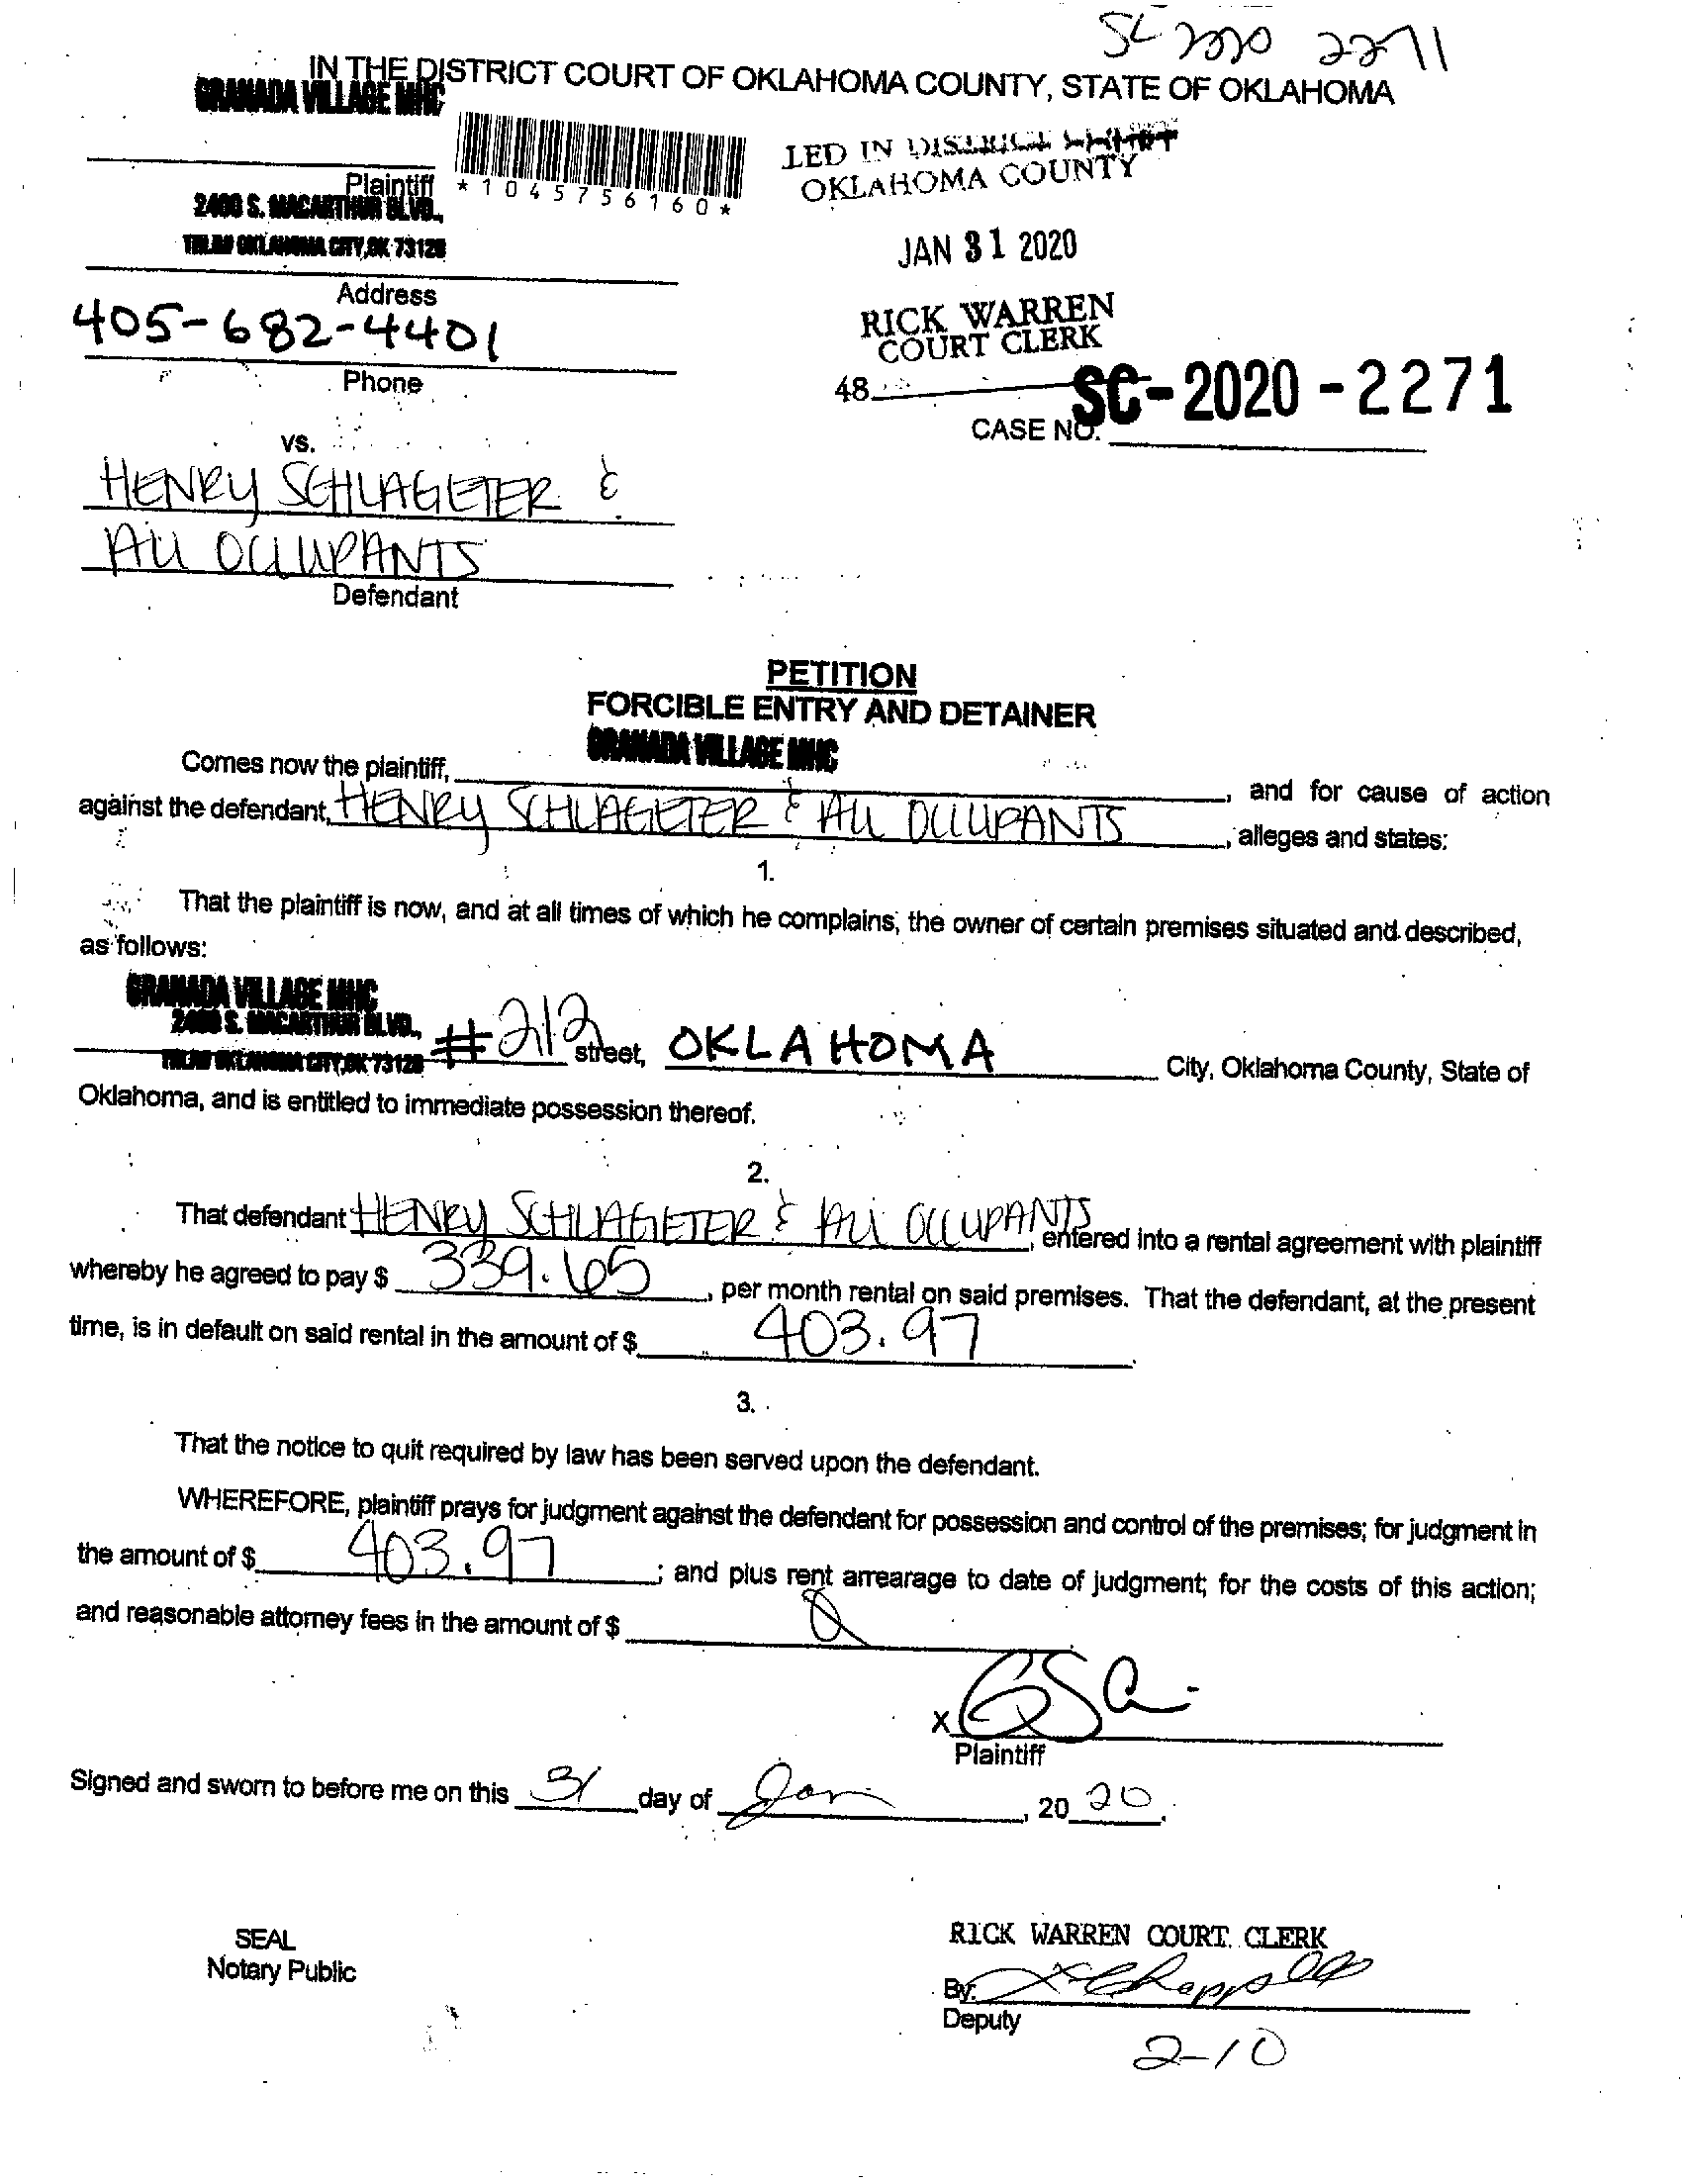 SC 2020 2271
IN THE DISTRICT COURT OF OKLAHOMA COUNTY, STATE OF OKLAHOMA
GRANADA VILLAGE MHC
LED IN DISTRICT COURT
OKLAHOMA COUNTY
Plaintiff
*1045756160*
2400 S. MACARTHUR BLVD.,
OKLAHOMA CITY, OK 73128
JAN 31 2020
Address
405-682-4401
RICK WARREN
COURT CLERK
Phone
48
SC-2020-2271
CASE NO.
vs.
HENRY SCHLAGETER &
All OCCUPANTS
Defendant
PETITION
FORCIBLE ENTRY AND DETAINER
GRANADA VILLAGE MHC
Comes now the plaintiff, , and for cause of action
against the defendant, HENRY SCHLAGETER & All OCCUPANTS, alleges and states:
1.
That the plaintiff is now, and at all times of which he complains, the owner of certain premises situated and described,
as follows:
GRANADA VILLAGE MHC
2400 S. MACARTHUR BLVD.,
OKLAHOMA CITY, OK 73128 #212 street, OKLAHOMA City, Oklahoma County, State of
Oklahoma, and is entitled to immediate possession thereof.
2.
That defendant HENRY SCHLAGETER & All OCCUPANTS, entered into a rental agreement with plaintiff
whereby he agreed to pay $ 339.65, per month rental on said premises. That the defendant, at the present
time, is in default on said rental in the amount of $ 403.97.
3.
That the notice to quit required by law has been served upon the defendant.
WHEREFORE, plaintiff prays for judgment against the defendant for possession and control of the premises; for judgment in
the amount of $ 403.97; and plus rent arrearage to date of judgment; for the costs of this action;
and reasonable attorney fees in the amount of $
X
Plaintiff
Signed and sworn to before me on this 31 day of Jan, 2020.
SEAL
Notary Public
RICK WARREN COURT CLERK
By:
Deputy
2-10